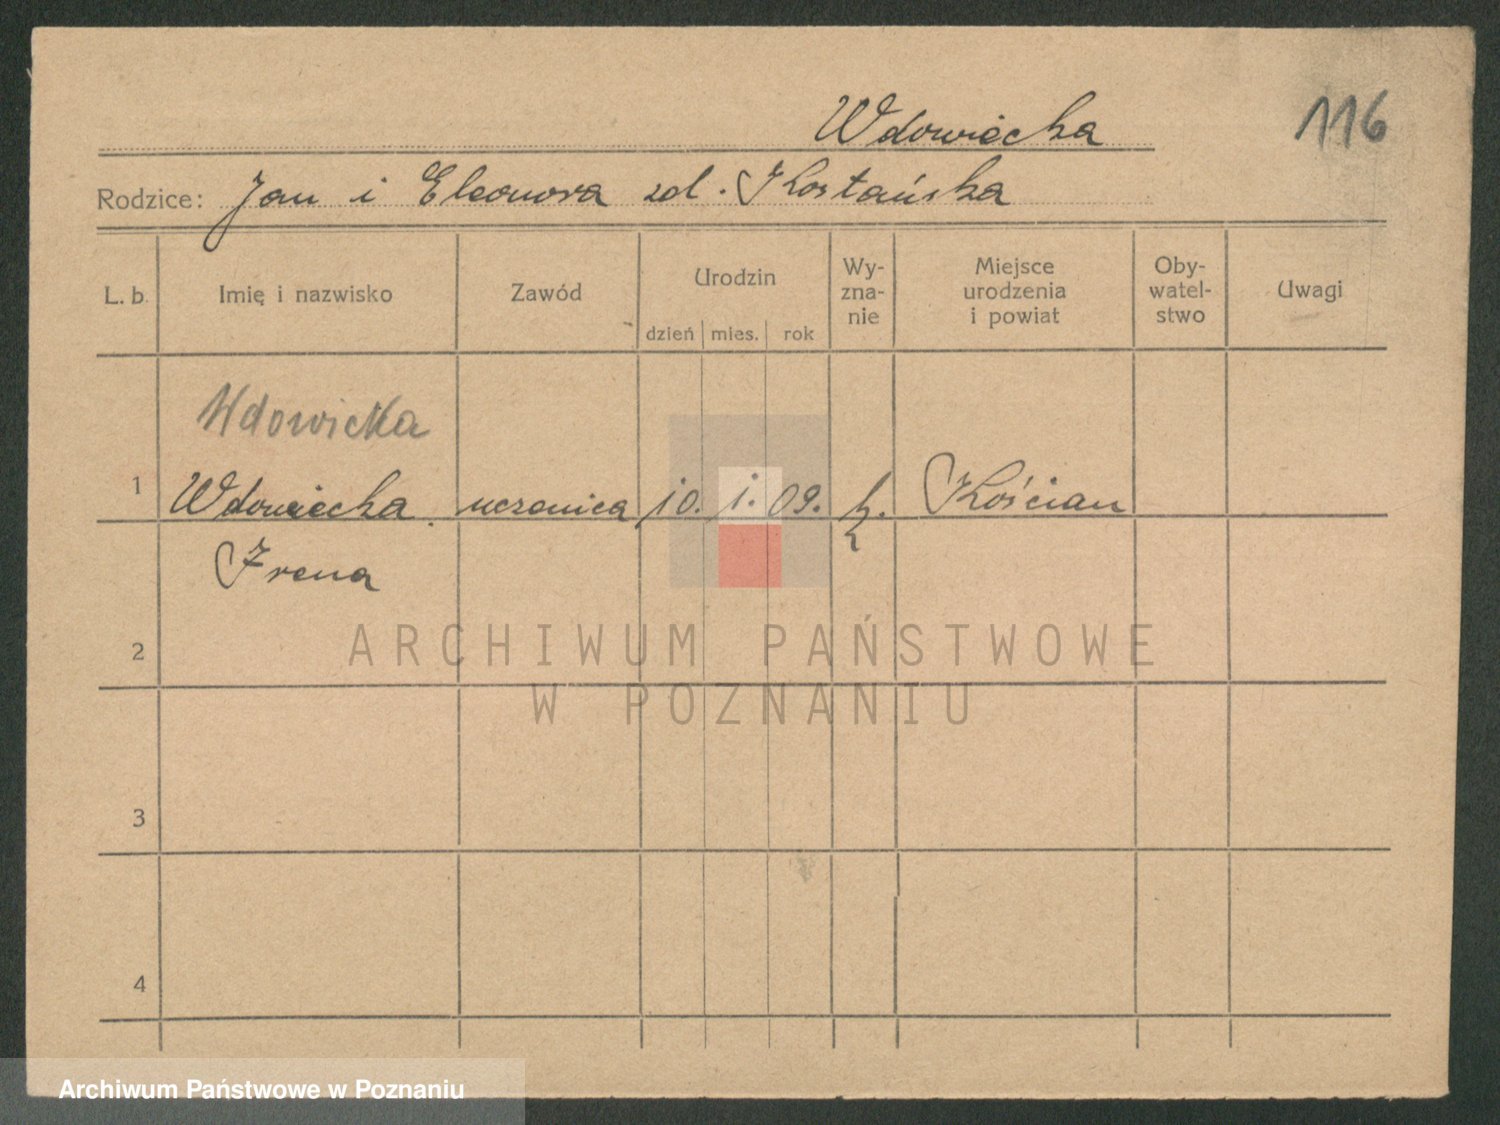 Wdowiecka
116
Rodzice: Jan i Eleonora zd. Kostańska
L. b. Imię i nazwisko Zawód Urodzin dzień mies. rok Wy-zna-nie Miejsce urodzenia i powiat Oby-watel-stwo Uwagi
Wdowicka
1 Wdowiecka uczenica 10. 1. 09. k. Kościan
Irena
2
ARCHIWUM PAŃSTWOWE
W POZNANIU
3
4
Archiwum Państwowe w Poznaniu